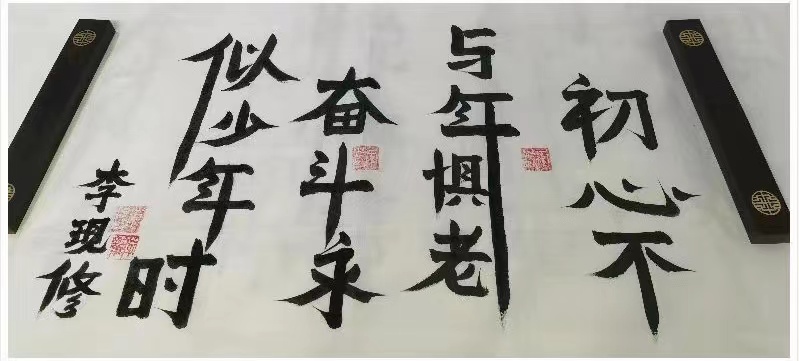 初心不
与年惧老
奋斗永
似少年时
李现修